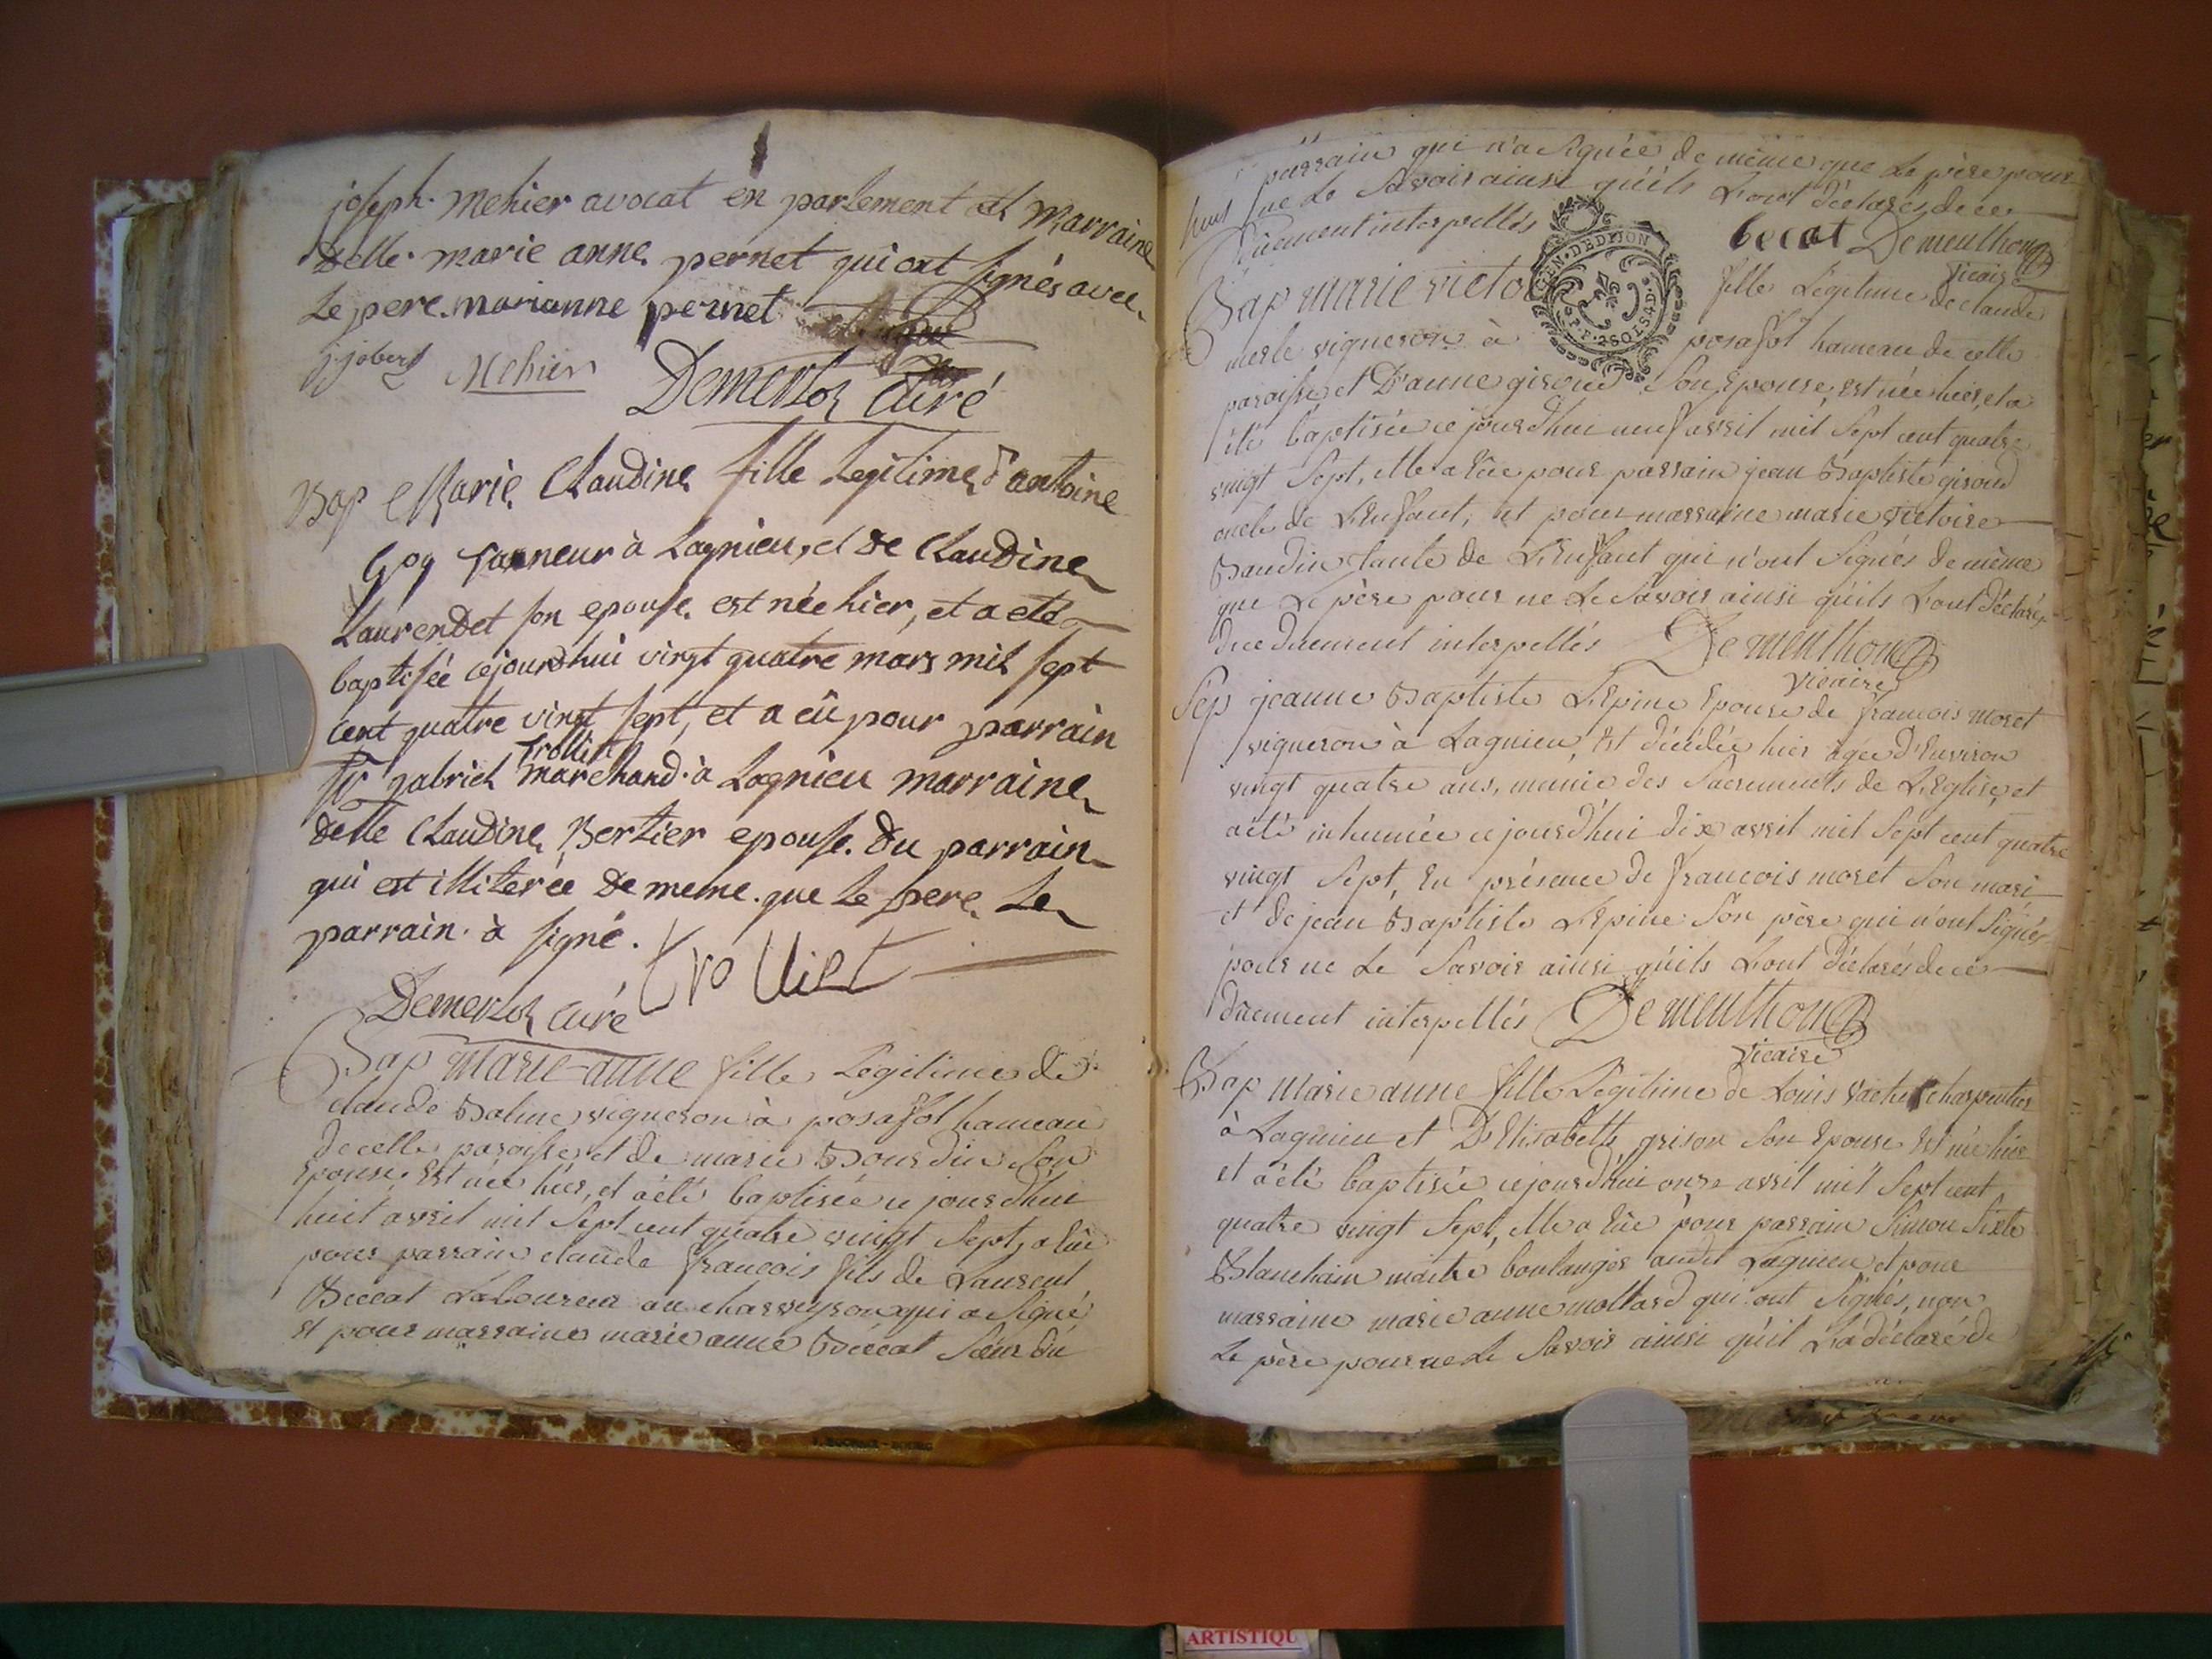 joseph. Mehier avocat en parlement et Marraine
delle. marie anne pernet qui ont signés avec
Le pere. marianne pernet
j. jobert Mehier Demerloz Curé
Bap Marie Claudine fille Legitime d'antoine
Goy Tanneur à Lagnieu, et de Claudine
Laurendet son epouse. est née hier, et a eté
baptisée cejourdhui vingt quatre mars mil sept
cent quatre vingt sept, et a eû pour parrain
Sr gabriel Trolliet marchand à Lagnieu marraine
delle Claudine Bertier epouse. du parrain
qui est illiterée de meme. que Le pere. Le
parrain. à signé. trolliet
Demerloz Curé
Bap marie-anne fille Légitime de
claude vigneron à posafol hameau
de cette paroisse et de marie Bourdin son
Epouse, Est née hier, et a été baptisée ce jourd'hui
huit avril mil sept cent quatre vingt sept, a Eüe
pour parrain claude francois fils de Laurent
Beccat Laboureur au charveyron qui a signé
et pour marraine marie anne Beccat soeur du
parrain qui n'a signée de même que Le père pour
ne Le savoir ainsi qu'ils L'ont déclarés de ce
düement interpellés becat Dementhon
vicaire
Bap marie victoire fille Légitime de claude
merle vigneron à posafol hameau de cette
paroisse et D'anne giroud son Epouse, est née hier, et a
été baptisée ce jourd'hui neuf avril mil sept cent quatre
vingt sept, elle a Eüe pour parrain jean Baptiste giroud
oncle de L'Enfant, et pour marraine marie victoire
Baudin tante de L'Enfant qui n'ont signés de même
que Le père pour ne Le savoir ainsi qu'ils L'ont déclarés
de ce düement interpellés Dementhon
vicaire
Sep jeanne Baptiste L'Epine Epouse de francois moret
vigneron à Lagnieu, Est décédée hier agée d'Environ
vingt quatre ans, munie des Sacrements de L'Eglise, et
a été inhumée ce jourd'hui dix avril mil sept cent quatre
vingt sept, En présence de francois moret son mari
et de jean Baptiste L'Epine son père qui n'ont signés
pour ne Le savoir ainsi qu'ils L'ont déclarés de ce
düement interpellés Dementhon
vicaire
Bap Marie anne fille Légitime de Louis vacher charpentier
à Lagnieu et D'Elisabeth grison son Epouse Est née hier
et a été baptisée ce jourd'hui onze avril mil sept cent
quatre vingt sept, elle a Eüe pour parrain Simon Sixte
Blanchain maitre boulanger audit Lagnieu et pour
marraine marie anne mollard qui ont signés, non
Le père pour ne Le savoir ainsi qu'il L'a déclaré de
ARTISTIQU